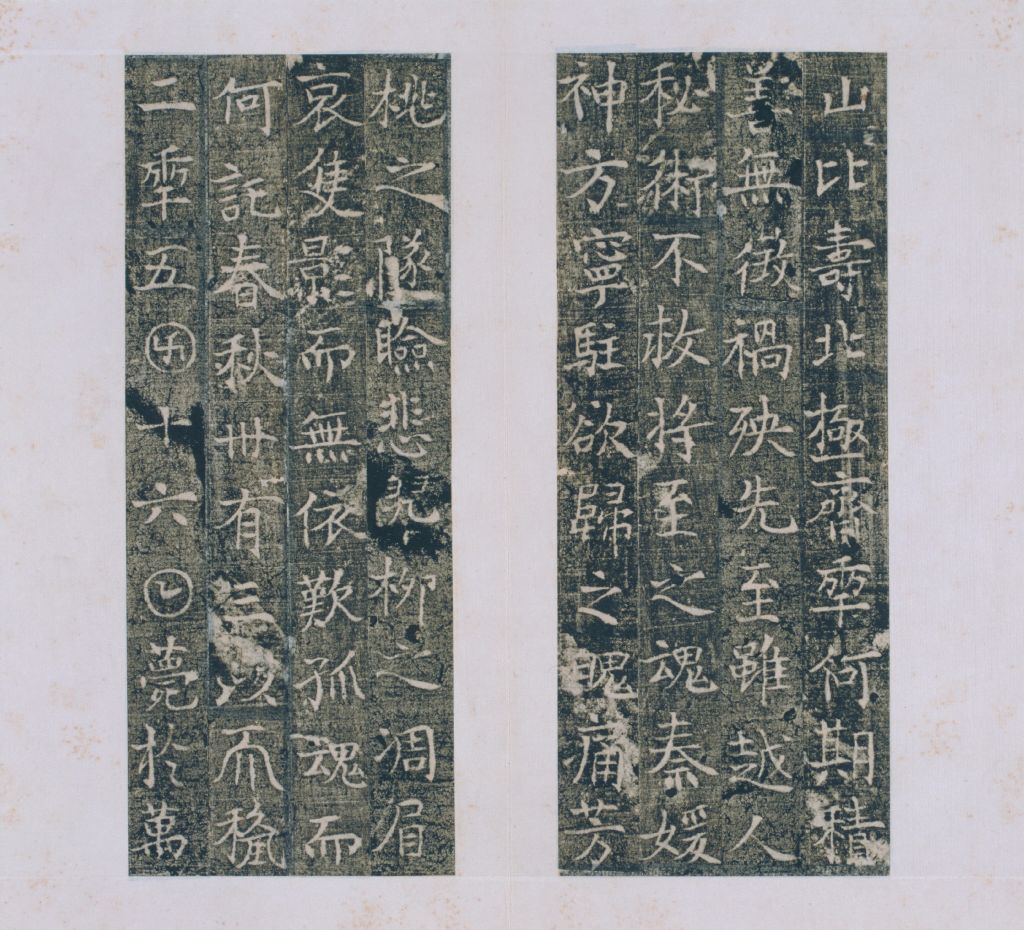 山比壽北極齊𠡦何期積
善無徵禍殃先至雖越人
秘術不救將至之魂秦媛
神方寧駐欲歸之魄痛芳
桃之墜臉悲柳之凋眉
哀隻影而無依歎孤魂而
何託春秋卌有三以𠀑𥠢
二𠡦五𠥱十六𡆠薨於萬